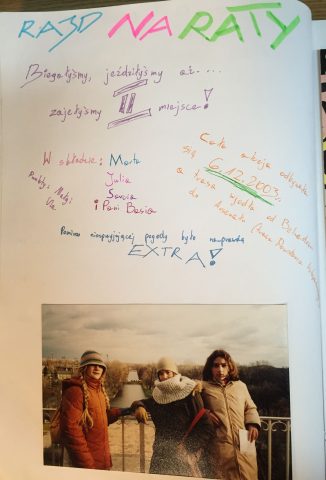 RAJD NA RATY
Biegałyśmy, jeździłyśmy aż...
zajęłyśmy II miejsce!
W składzie: Marta
Julia
Sonia
i Pani Basia
Cała akcja odbyła
się 6.12.2003r.
a trasa wiodła od
do
Pomimo niesprzyjającej pogody było naprawdę
EXTRA!